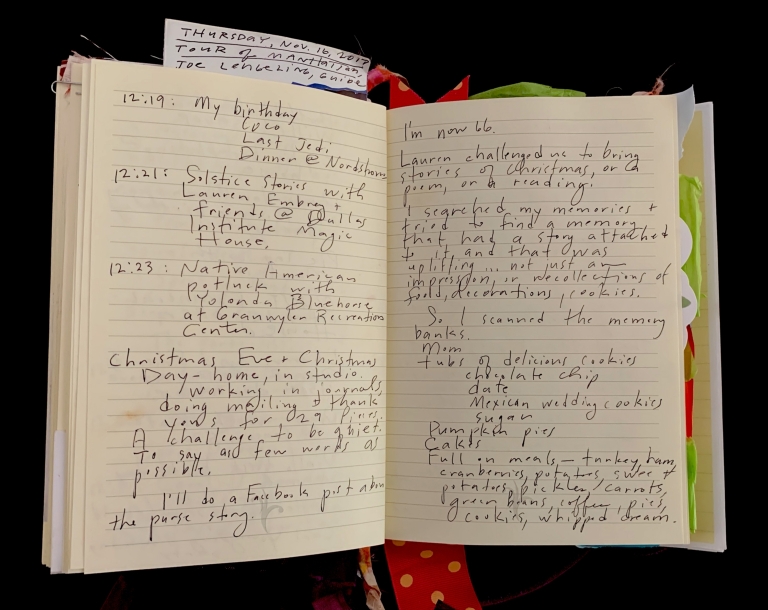 THURSDAY, NOV. 16, 2017
TOUR OF MANHATTAN,
JOE LENGELING, GUIDE
12:19: My birthday
Coco
Last Jedi
Dinner @ Nordstrom
12:21: Solstice Stories with
Lauren Embrey +
friends @ Dallas
Institute Magic
House.
12:23: Native American
potluck with
Yolonda Bluehorse
at Grauwyler Recreation
Center.
Christmas Eve + Christmas
Day - home, in studio.
working in journals,
doing mailing + thank
yous for 29 Pines.
A challenge to be quiet.
To say as few words as
possible.
I'll do a Facebook post about
the purse story.
I'm now 66.
Lauren challenged us to bring
stories of Christmas, or a
poem, or a reading.
I searched my memories +
tried to find a memory
that had a story attached
to it and that was
uplifting... not just an
impression, or recollections of
food, decorations, cookies.
So I scanned the memory
banks.
Mom
tubs of delicious cookies
chocolate chip
date
Mexican wedding cookies
sugar
Pumpkin pies
Cakes
Full on meals - turkey ham,
cranberries, potatoes, sweet
potatoes, pickles, carrots,
green beans, coffee, pies,
cookies, whipped cream.